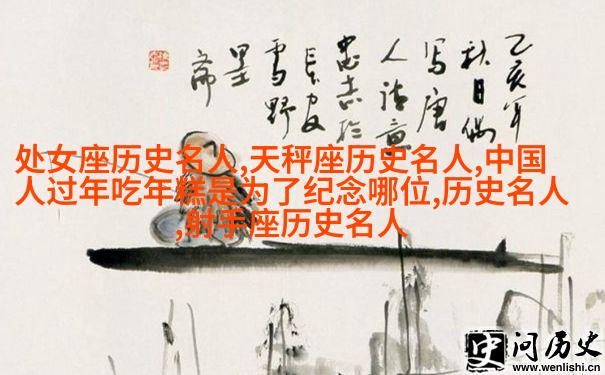 乙亥年
秋日偶
写唐
人诗意
忠志于
长安
雪野
墨
斋
处女座历史名人,天秤座历史名人,中国
人过年吃年糕是为了纪念哪位,历史名人
,射手座历史名人
史问历史
www.wenlishi.cn